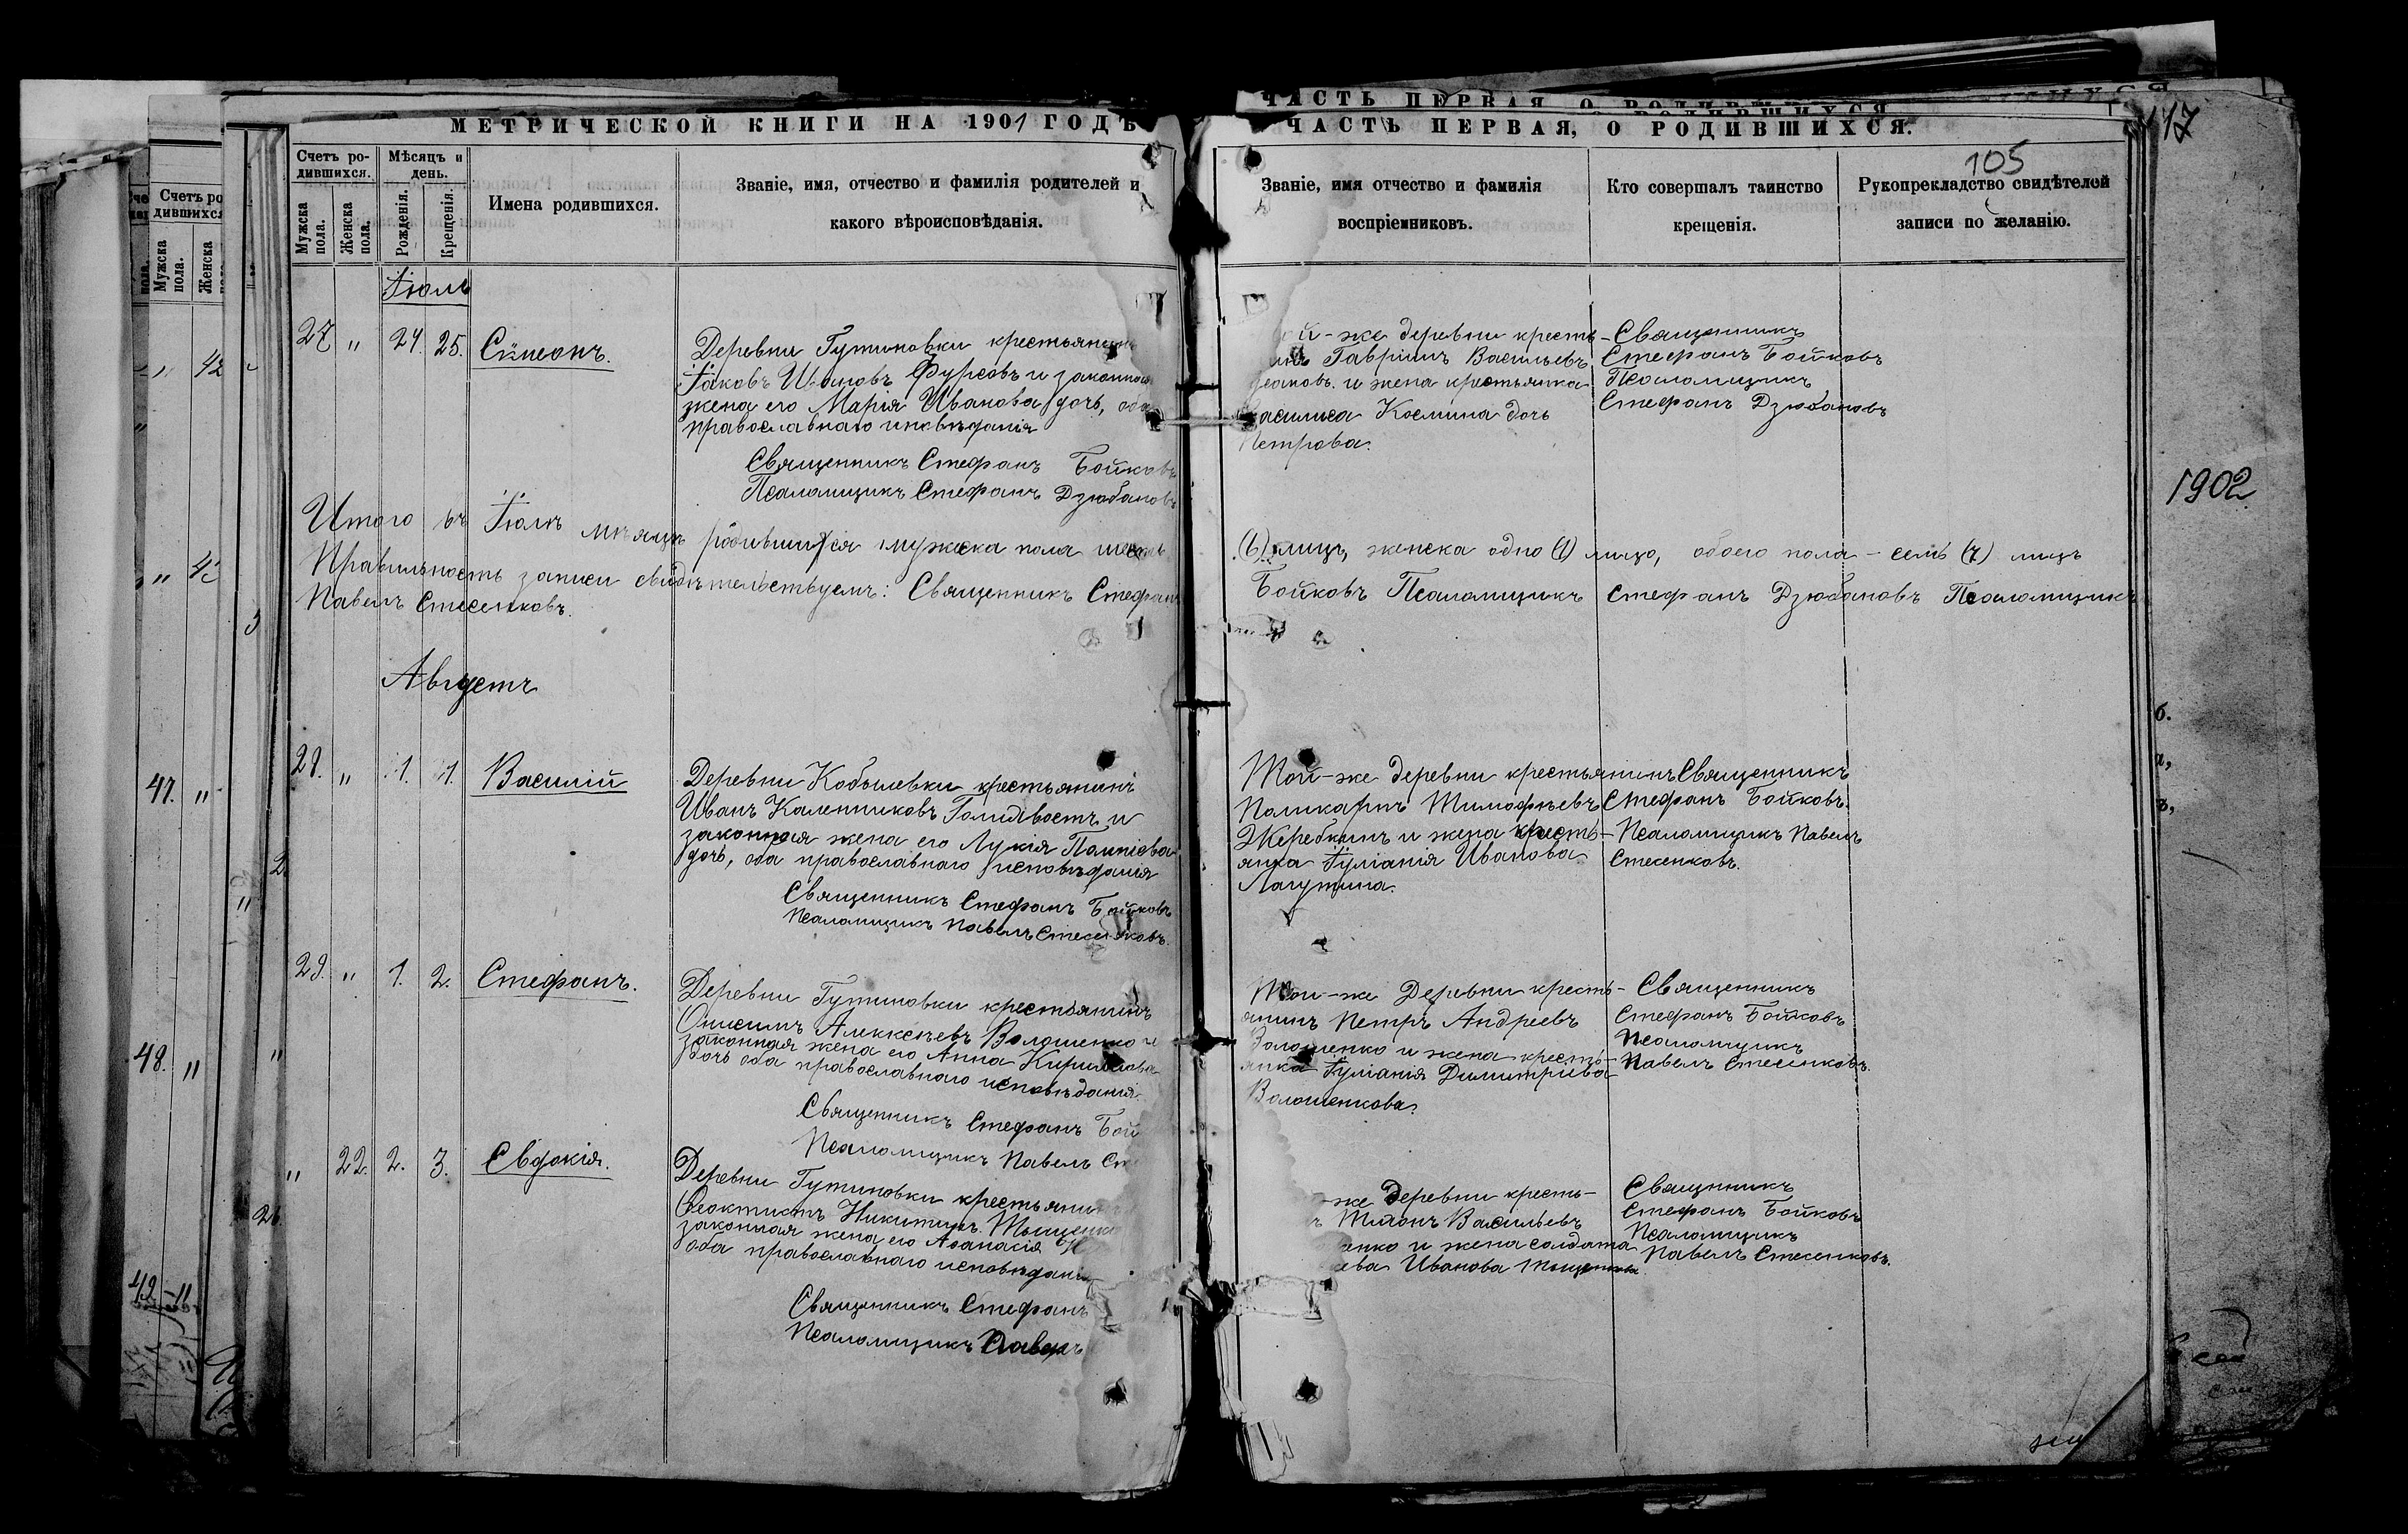 МЕТРИЧЕСКОЙ КНИГИ НА 1901 ГОДЪ
ЧАСТЬ ПЕРВАЯ, О РОДИВШИХСЯ.
117
105
Счетъ ро-
дившихся.
Мѣсяцъ и
день.
Мужска
пола.
Женска
пола.
Рожденія.
Крещенія.
Имена родившихся.
Званіе, имя, отчество и фамилія родителей и
какого вѣроисповѣданія.
Званіе, имя отчество и фамилія
воспріемниковъ.
Кто совершалъ таинство
крещенія.
Рукоприкладство свидѣтелей
записи по желанію.
Іюль
27 " 24. 25. Сѵмеонъ.
Деревни Гутиновки крестьянинъ
Іаковъ Ивановъ Фурсовъ и законная
жена его Марія Иванова дочь, оба
православнаго исповѣданія
Священникъ Стефанъ Бойковъ
Псаломщикъ Стефанъ Дзюбановъ
й-же деревни кресть-
инъ Гавріилъ Васильевъ
и жена крестьянка
Василиса Космина дочь
Петрова.
Священникъ
Стефанъ Бойковъ
Псаломщикъ
Стефанъ Дзюбановъ
Итого въ Іюлѣ мѣсяцѣ родившихся мужеска пола шесть (6) лицъ, женска одно (1) лицо, обоего пола - семь (7) лицъ
Правильность записи свидѣтельствуемъ: Священникъ Стефанъ Бойковъ Псаломщикъ Стефанъ Дзюбановъ Псаломщикъ
Павелъ Стесенковъ.
1902
Августъ
28. " 1. 1. Василій
Деревни Кобылевки крестьянинъ
Иванъ Каленниковъ и
законная жена его Лукія
дочь, оба православнаго исповѣданія
Священникъ Стефанъ Бойковъ
Псаломщикъ Павелъ Стесенковъ.
Той-же деревни крестьянинъ
Поликарпъ Тимофѣевъ
Жеребкинъ и жена кресть-
янка Іуліанія Иванова
Лагутина.
Священникъ
Стефанъ Бойковъ.
Псаломщикъ Павелъ
Стесенковъ.
29. " 1. 2. Стефанъ.
Деревни Гутиновки крестьянинъ
Онисимъ Алексѣевъ Волошенко и
законная жена его Анна Кириллова
дочь оба православнаго исповѣданія.
Священникъ Стефанъ Бой
Псаломщикъ Павелъ Ст
Той-же Деревни кресть-
янинъ Петръ Андреевъ
Волошенко и жена кресть-
янка Іуліанія Димитріева
Волошенкова.
Священникъ
Стефанъ Бойковъ
Псаломщикъ
Павелъ Стесенковъ.
" 22. 2. 3. Евдокія.
Деревни Гутиновки крестьянинъ
Ѳеоктистъ Никитинъ Тыщенко
законная жена его Аѳанасія
оба православнаго исповѣданія
Священникъ Стефанъ
Псаломщикъ Павелъ
-же деревни кресть-
ъ Васильевъ
енко и жена солдата
ева Иванова Тыщенкова.
Священникъ
Стефанъ Бойковъ
Псаломщикъ
Павелъ Стесенковъ.
Счетъ ро
дившихся
Мужска
пола.
Женска
" 42
47. "
48. "